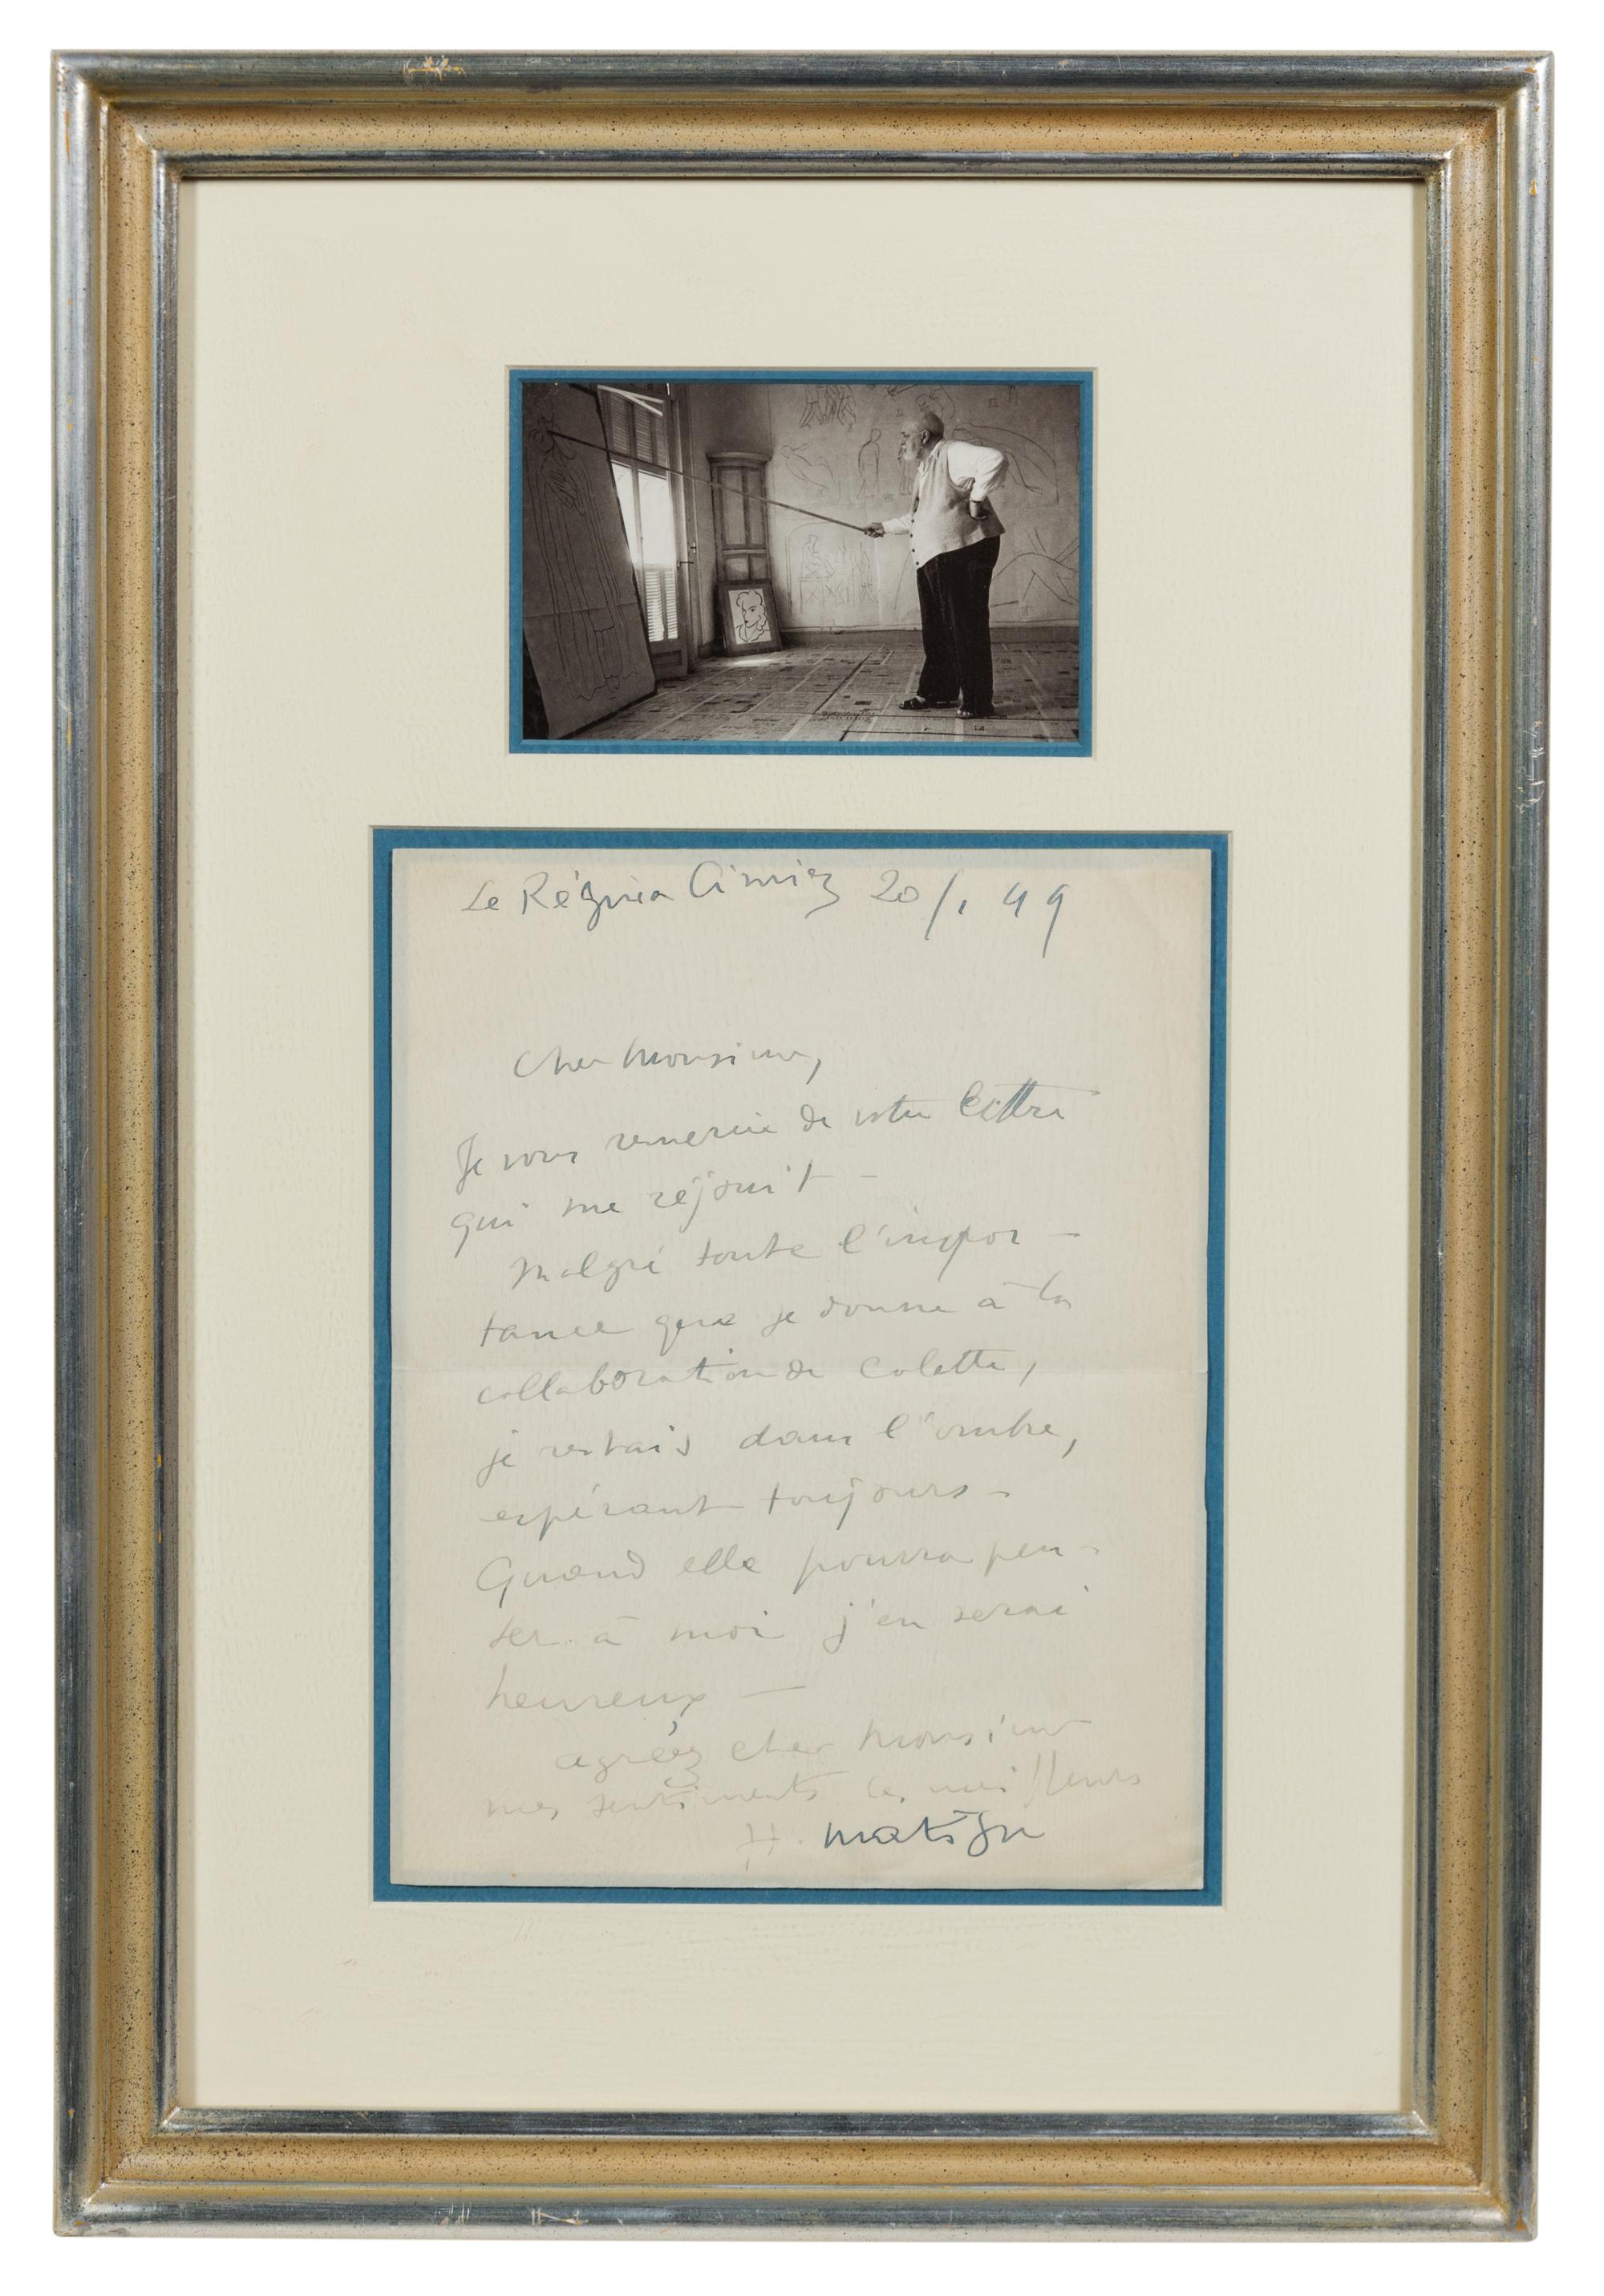 Le Régina Cimiez 20/1 49
Cher Monsieur,
Je vous remercie de votre lettre
qui me réjouit –
Malgré toute l'impor –
tance que je donne à la
collaboration de Colette,
je restais dans l'ombre,
espérant toujours –
Quand elle pourra pen –
ser à moi j'en serai
heureux —
agréez cher Monsieur
mes sentiments les meilleurs
H. Matisse